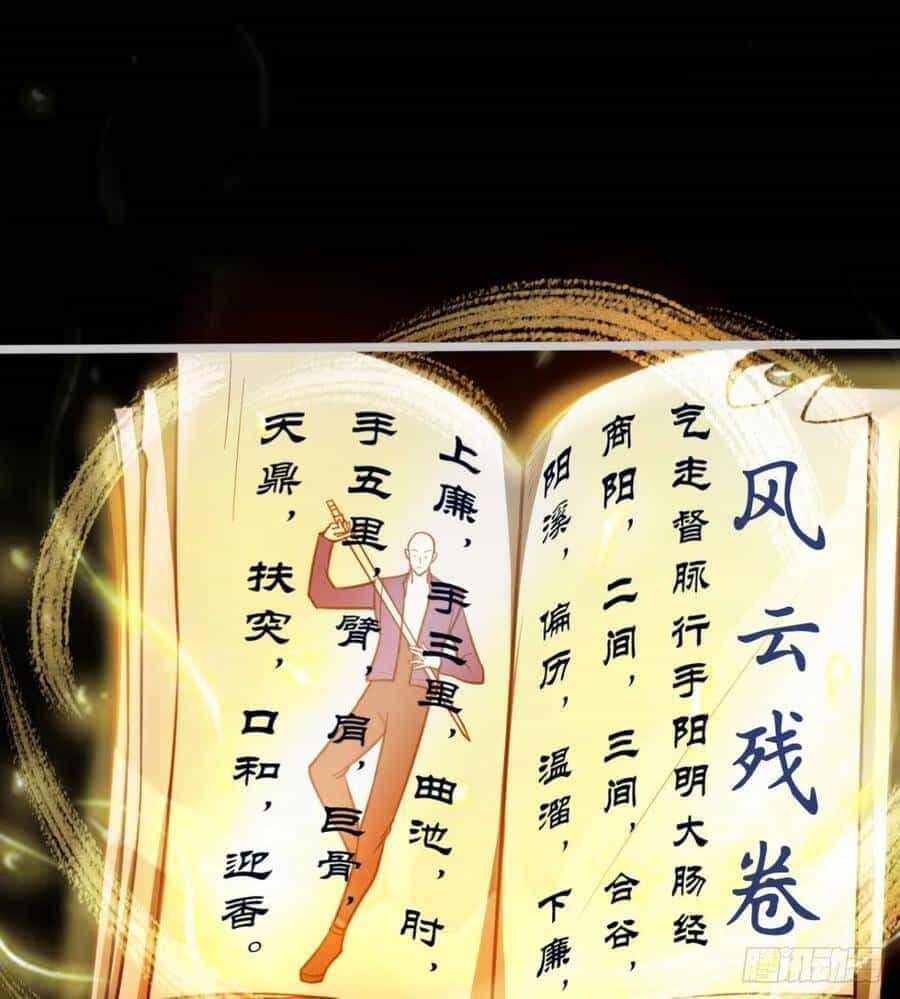 风云残卷
气走督脉行手阳明大肠经
商阳，二间，三间，合谷，
阳溪，偏历，温溜，下廉，
上廉，手三里，曲池，肘，
手五里，臂，肩，巨骨，
天鼎，扶突，口和，迎香。
腾讯动漫